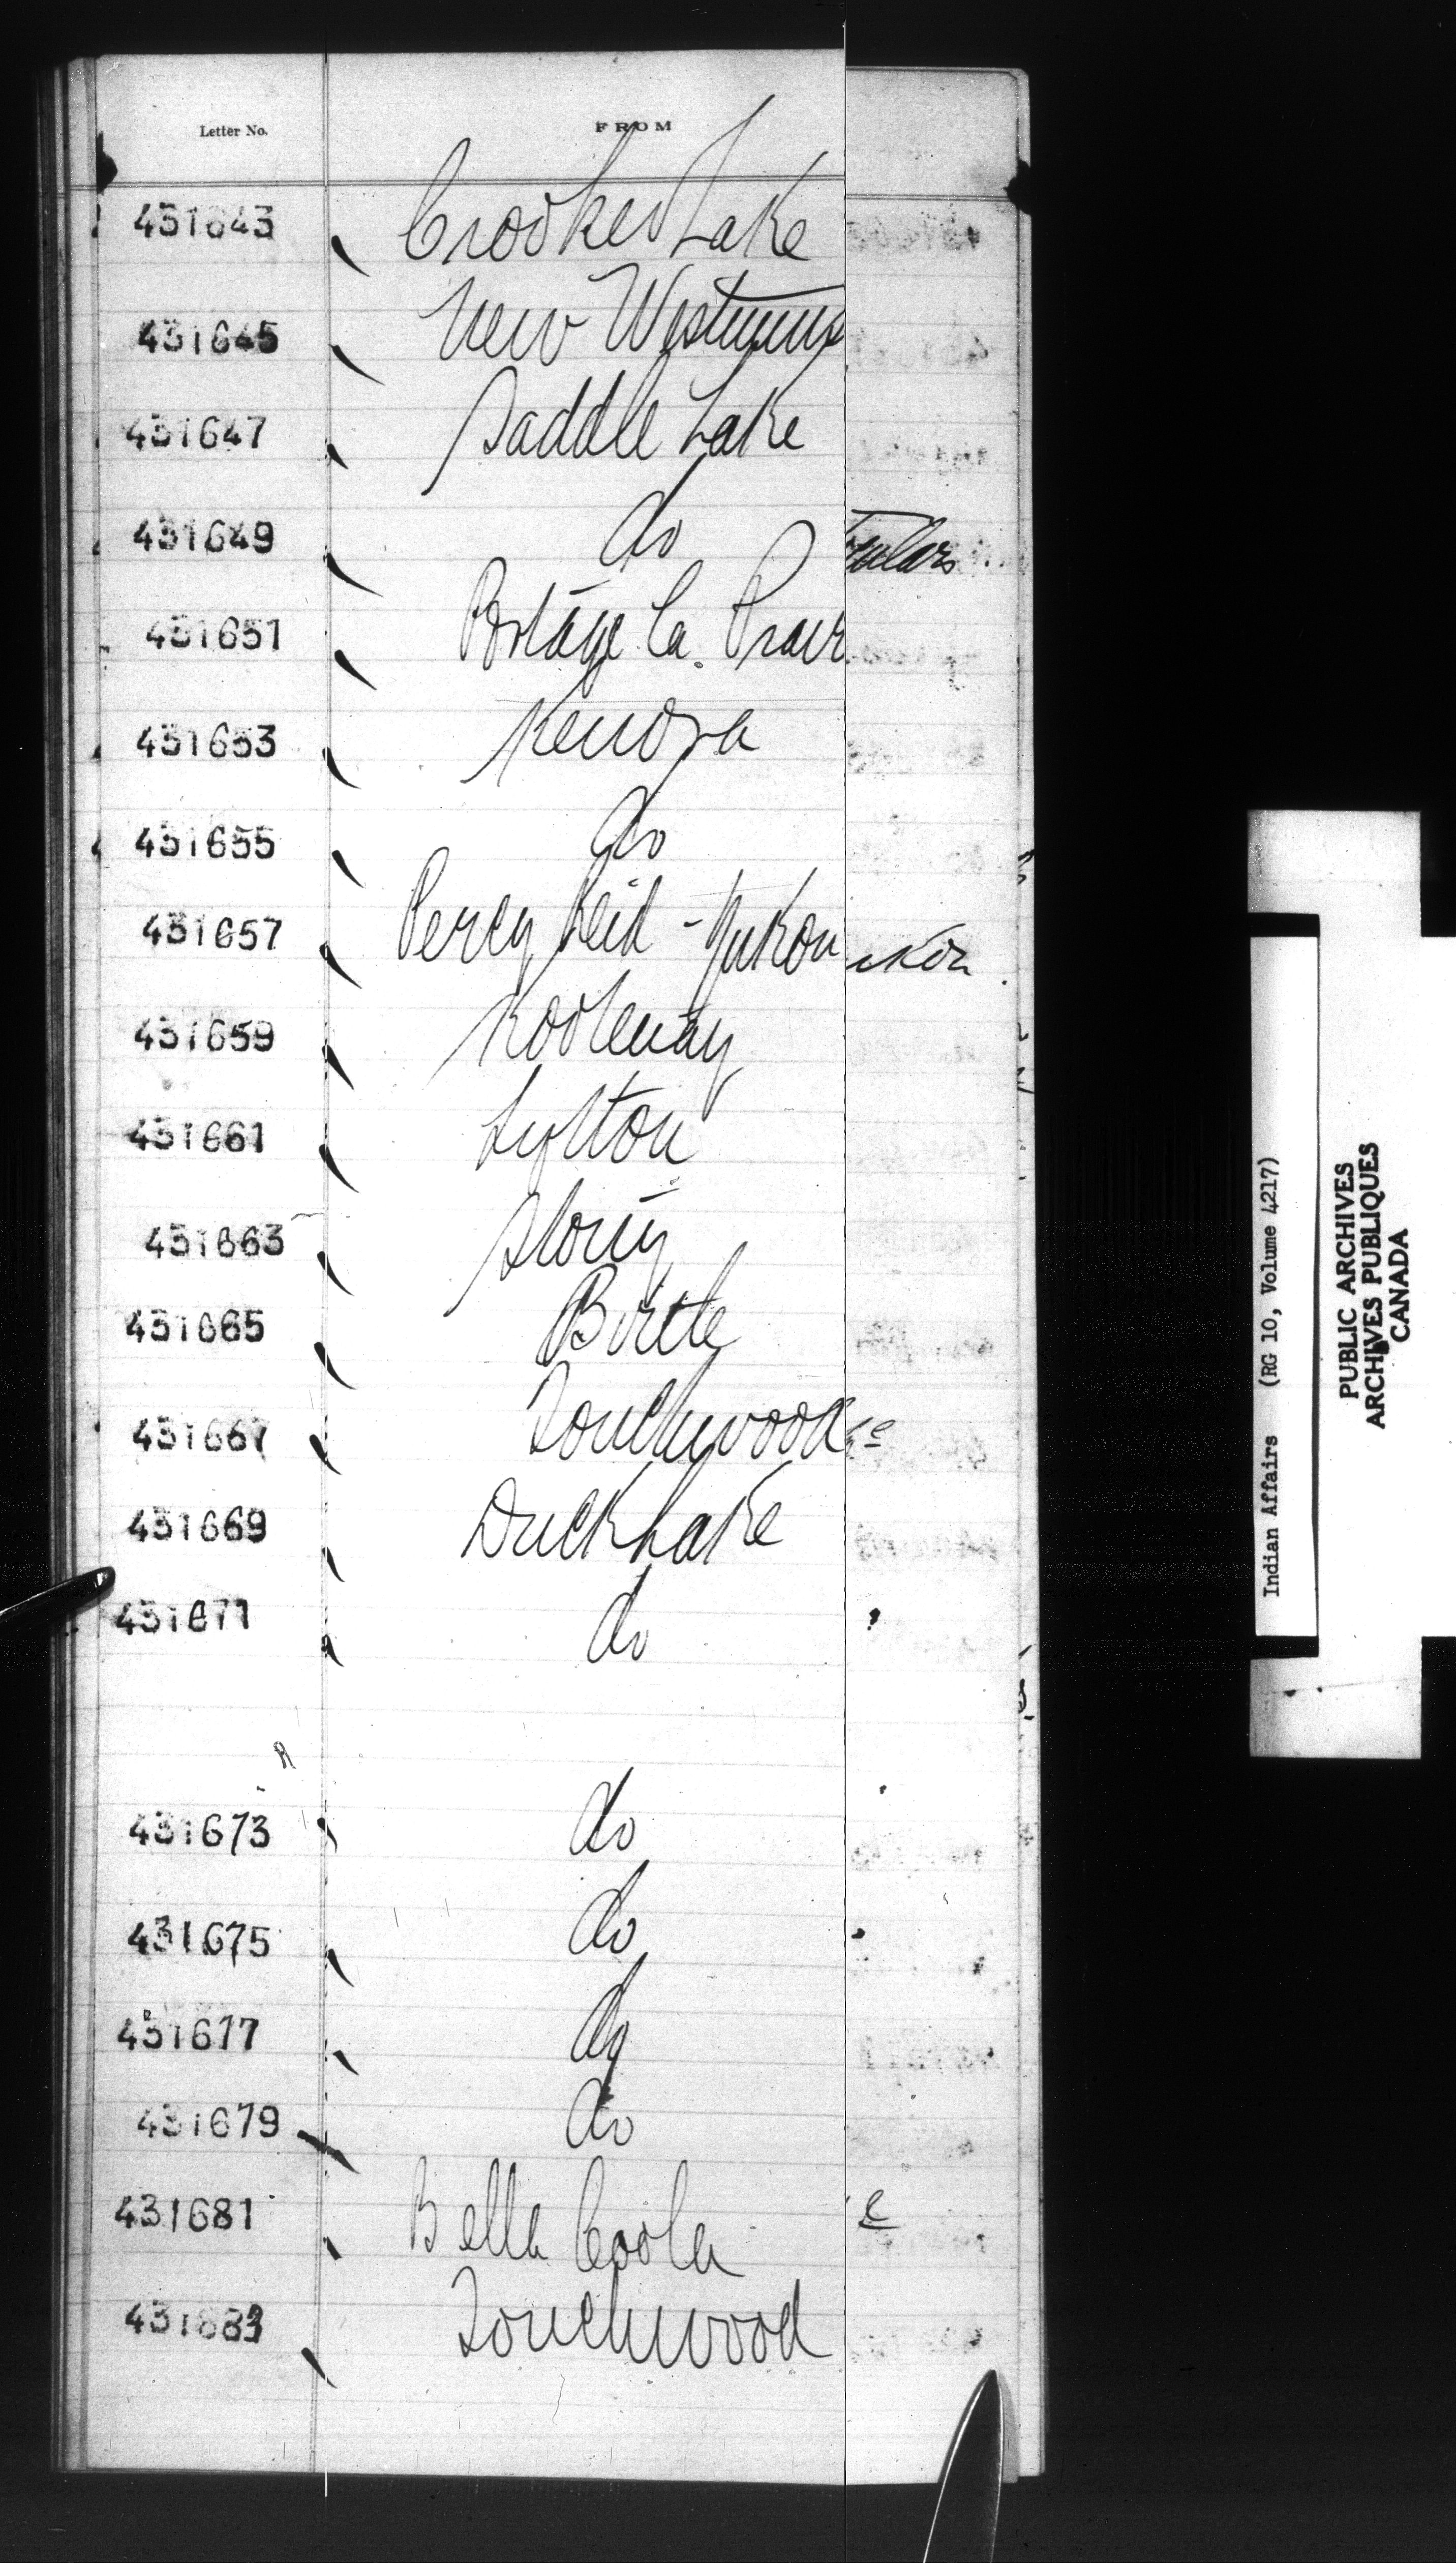 Letter No. FROM
431643 Crooked Lake
431645 New Westmins
431647 Saddle Lake
431649 do
431651 Portage la Prair
431653 Kenora
431655 do
431657 Percy Reid - Yukon
431659 Kootenay
431661 Lytton
431663 Stony
431665 Birtle
431667 Touchwood
431669 Duck Lake
431671 do
431673 do
431675 do
431677 do
431679 do
431681 Bella Coola
431683 Touchwood
Indian Affairs (RG 10, Volume 4217)
PUBLIC ARCHIVES
ARCHIVES PUBLIQUES
CANADA